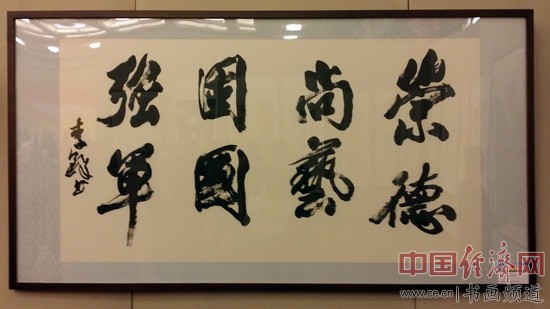 崇德
尚藝
固國
强軍
李鐸书
中国经济网
www.ce.cn|书画频道